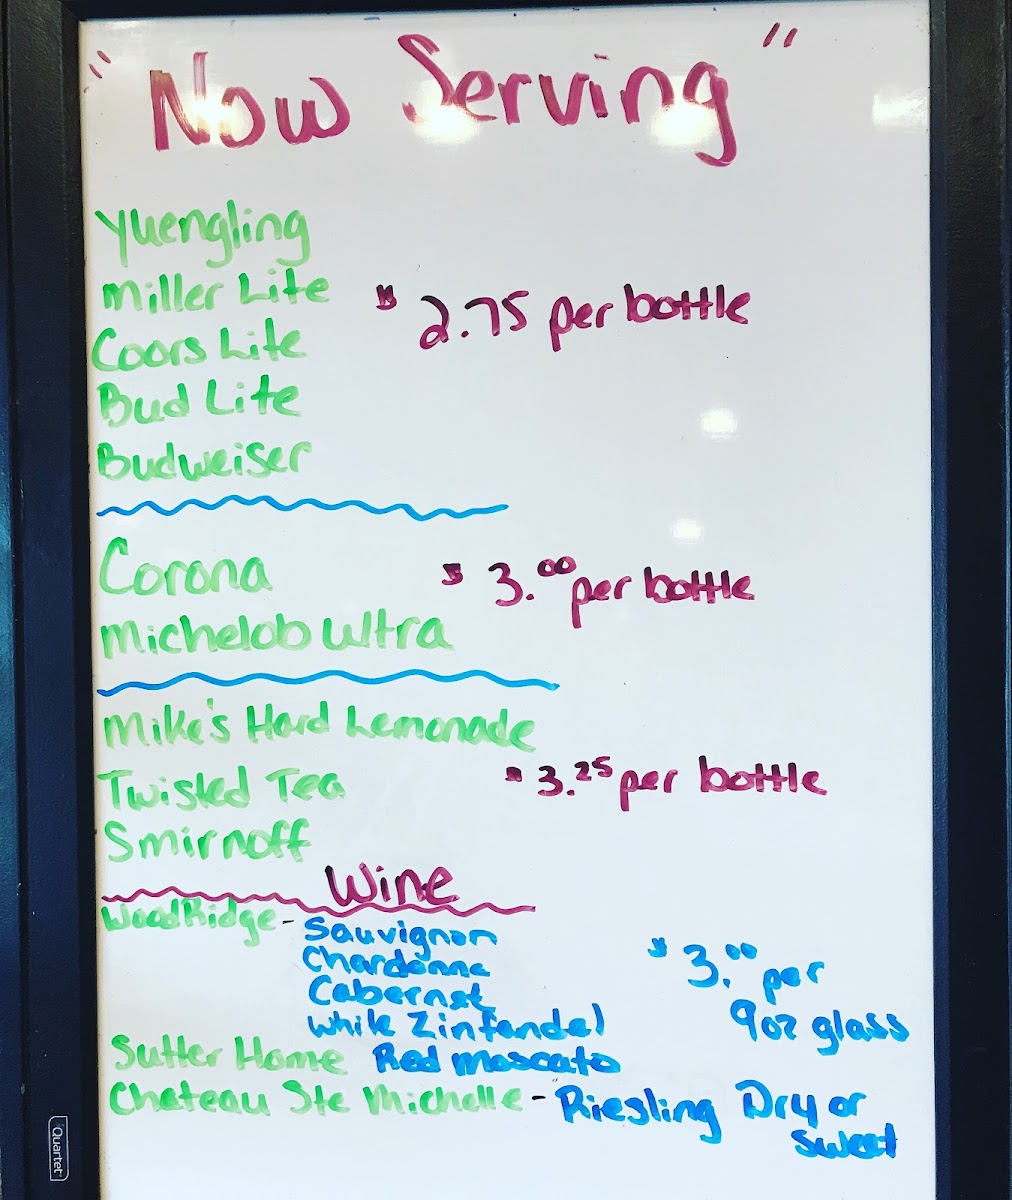 "Now Serving"
Yuengling
Miller Lite
$2.75 per bottle
Coors Lite
Bud Lite
Budweiser
Corona
$3.00 per bottle
Michelob Ultra
Mike's Hard Lemonade
Twisted Tea
$3.25 per bottle
Smirnoff
Wine
WoodRidge - Sauvignon
Chardonne
Cabernet
White Zinfandel
$3.00 per
9oz glass
Sutter Home Red Moscato
Chateau Ste Michelle - Riesling Dry or
Sweet
Quartet